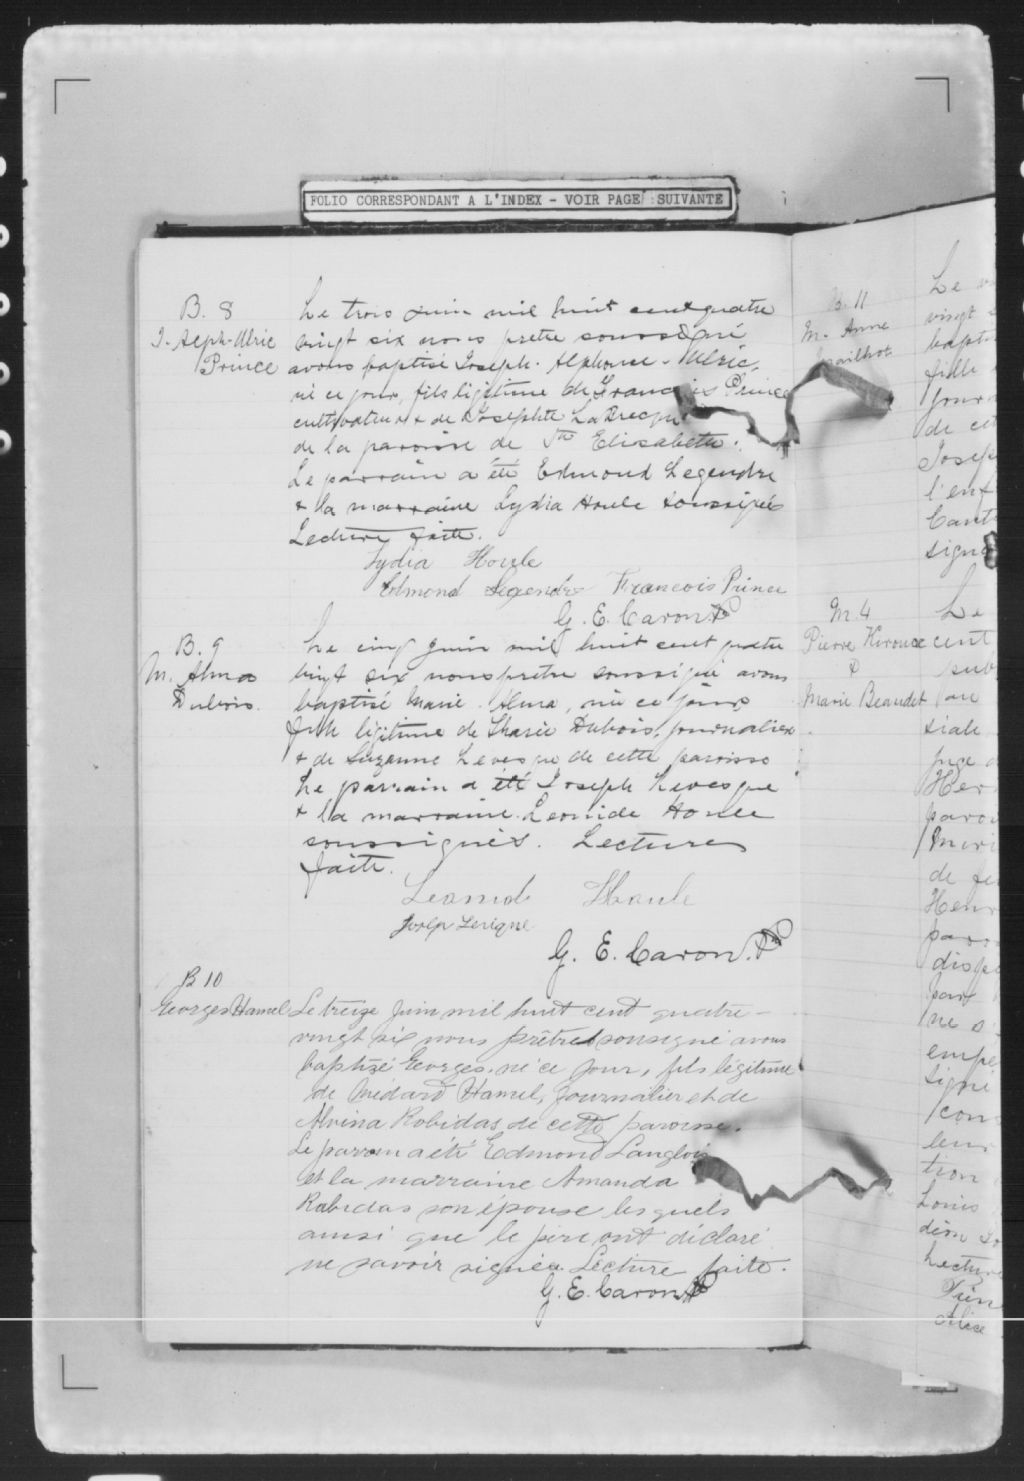 FOLIO CORRESPONDANT A L'INDEX - VOIR PAGE SUIVANTE
B. 8
J. Alph-Ulric
Prince
Le trois juin mil huit cent quatre
vingt six nous prêtre soussigné
avons baptisé Joseph. Alphonse-Ulric,
né ce jour, fils légitime de Francois Prince
cultivateur & de Josephte LaBrecque
de la paroisse de Ste Elisabeth.
Le parrain a été Edmond Legendre
& la marraine Lydia Houle soussignés
Lecture faite.
Lydia Houle
Edmond Legendre Francois Prince
G. E. Caron Ptre
B. 9
M. Alma
Dubois.
Le cinq juin mil huit cent quatre
vingt six nous prêtre soussigné avons
baptisé Marie. Alma, née ce jour
fille légitime de Dubois, journalier
& de Suzanne Levesque de cette paroisse
Le parrain a été Joseph Levesque
& la marraine Leonide Houle
soussignés. Lecture
faite.
Houle
G. E. Caron. Ptre
B 10
Georges Hamel
Le treize juin mil huit cent quatre-
vingt six nous prêtre soussigné avons
baptizé Georges, né ce jour, fils légitime
de Médard Hamel, journalier et de
Alvina Robidas de cette paroisse.
Le parrain a été Edmond Langlois
et la marraine Amanda
Robidas son épouse lesquels
ainsi que le père ont déclaré
ne savoir signer. Lecture faite.
G. E. Caron Ptre
B. 11
M. Anne
M. 4
Pierre Kirouac
&
Marie Beaudet
Le
vingt
fille
jour
de cet
Joseph
l'enf
sign
Le
cent
au
siale
de
Henr
par
ne s
empe
signé
tion
Louis
Lecture
Alice